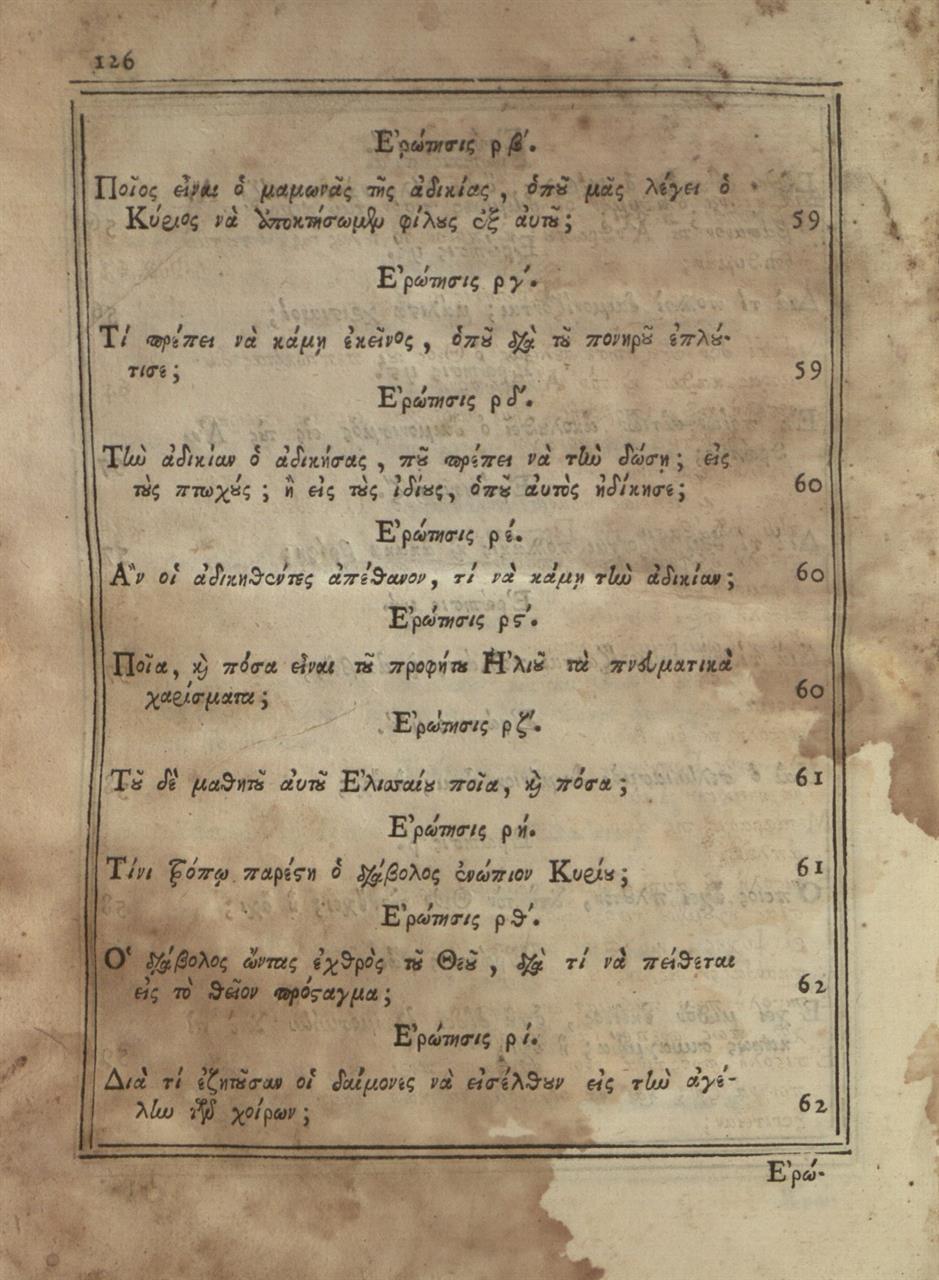 126
Ἐρώτησις ρβ'.
Ποῖος εἶναι ὁ μαμωνᾶς τῆς ἀδικίας, ὁποῦ μᾶς λέγει ὁ
Κύριος νὰ ἀποκτήσωμεν φίλους ἐξ αὐτοῦ; 59
Ἐρώτησις ργ'.
Τί πρέπει νὰ κάμῃ ἐκεῖνος, ὁποῦ διὰ τοῦ πονηροῦ ἐπλού-
τισε; 59
Ἐρώτησις ρδ'.
Τὴν ἀδικίαν ὁ ἀδικήσας, ποῦ πρέπει νὰ τὴν δώσῃ; εἰς
τοὺς πτωχούς; ἢ εἰς τοὺς ἰδίους, ὁποῦ αὐτὸς ἠδίκησε; 60
Ἐρώτησις ρέ.
Ἂν οἱ ἀδικηθέντες ἀπέθανον, τί νὰ κάμῃ τὴν ἀδικίαν; 60
Ἐρώτησις ρϛ'.
Ποῖα, καὶ πόσα εἶναι τοῦ προφήτου Ἠλιοῦ τὰ πνευματικὰ
χαρίσματα; 60
Ἐρώτησις ρζ'.
Τοῦ δὲ μαθητοῦ αὐτοῦ Ἐλισσαίου ποῖα, καὶ πόσα; 61
Ἐρώτησις ρή.
Τίνι τρόπῳ παρέστη ὁ διάβολος ἐνώπιον Κυρίου; 61
Ἐρώτησις ρθ'.
Ὁ διάβολος ὤντας ἐχθρὸς τοῦ Θεοῦ, διὰ τί νὰ πείθεται
εἰς τὸ θεῖον πρόσταγμα; 62
Ἐρώτησις ρί.
Διὰ τί ἐζητοῦσαν οἱ δαίμονες νὰ εἰσέλθουν εἰς τὴν ἀγέ-
λην τῶν χοίρων; 62
Ἐρώ-